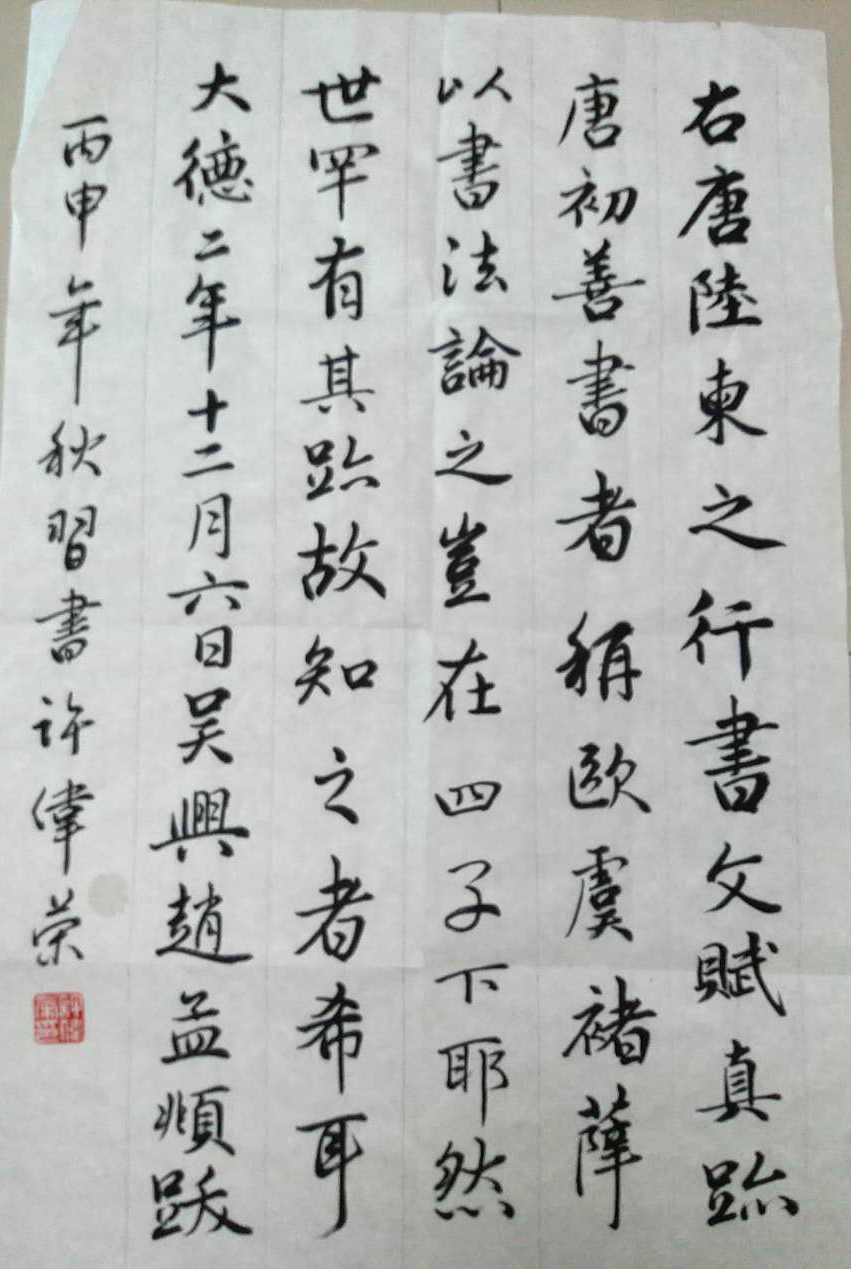 右唐陸柬之行書文賦真跡
唐初善書者稱歐虞褚薛
以書法論之豈在四子下耶然
世罕有其跡故知之者希耳
大德二年十二月六日吴興趙孟頫跋
丙申年秋習書許偉荣